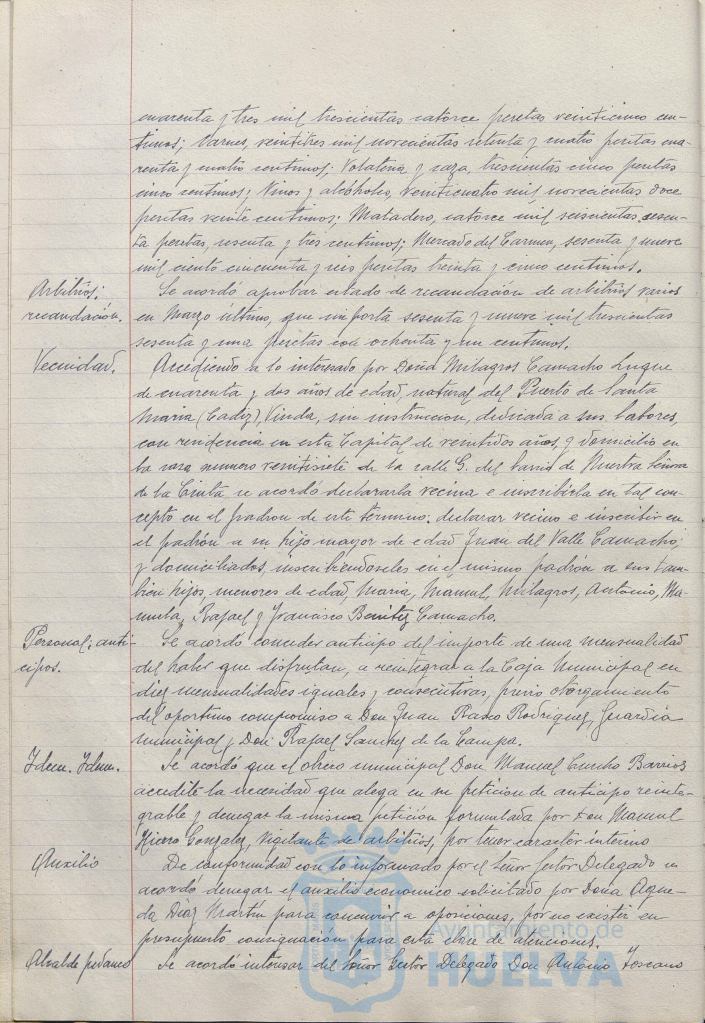 cuarenta y tres mil trescientas catorce pesetas veinticinco cen-
timos; Carnes, veintitres mil novecientas setenta y cuatro pesetas cua-
renta y cuatro centimos; Volateria y caza, trescientas cinco pesetas
cinco centimos; Vinos y alcóholes, veinticuatro mil novecientas doce
pesetas veinte centimos; Matadero, catorce mil seiscientas sesen-
ta pesetas, sesenta y tres centimos; Mercado del Carmen, sesenta y nueve
mil ciento cincuenta y seis pesetas treinta y cinco centimos.
Arbitrios; recaudación.
Se acordó aprobar estado de recaudación de arbitrios varios
en Marzo último, que importa sesenta y nueve mil trescientas
sesenta y una pesetas con ochenta y un centimos.
Vecindad.
Accediendo a lo interesado por Doña Milagros Camacho Luque
de cuarenta y dos años de edad, natural del Puerto de Santa
Maria (Cadiz), Viuda, sin instruccion, dedicada a sus labores,
con residencia en esta Capital de veintidos años, y domicilio en
la casa numero veintisiete de la calle G. del barrio de Nuestra Señora
de la Cinta se acordó declararla vecina e inscribirla en tal con-
cepto en el padron de este termino; declarar vecino e inscribir en
el padrón a su hijo mayor de edad Juan del Valle Camacho;
y domiciliados inscribiendoseles en el mismo padrón a sus tam-
bien hijos, menores de edad, Maria, Manuel, Milagros, Antonio, Ma-
nuela, Rafael y Francisco Benitez Camacho.
Personal; anti-
cipos.
Se acordó conceder anticipo del importe de una mensualidad
del haber que disfrutan, a reintegrar a la Caja Municipal en
diez mensualidades iguales y consecutivas, previo otorgamiento
del oportuno compromiso a Don Juan Rasco Rodriguez, Guardia
municipal y Don Rafael Sanchez de la Campa.
Idem. Idem.
Se acordó que el obrero municipal Don Manuel Cuncho Barrios
acredite la necesidad que alega en su peticion de anticipo reinte-
grable y denegar la misma petición formulada por Don Manuel
Gonzalez, Vigilante de arbitrios, por tener caracter interino
Auxilio
De conformidad con lo informado por el Señor Gestor Delegado se
acordó denegar el auxilio economico solicitado por Doña Ague-
da Diaz Martin para concurrir a oposiciones, por no existir en
presupuesto consignación para esta clase de atenciones.
Alcalde pedaneo
Se acordó interesar del Señor Gestor Delegado Don Antonio Toscano
Ayuntamiento de
HUELVA